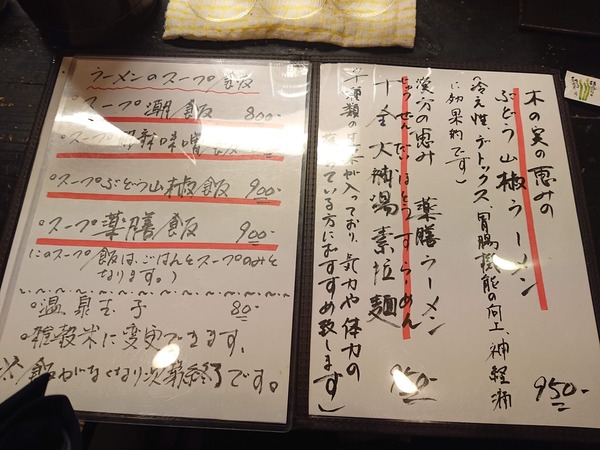 ラーメンのスープ飯
°スープ潮飯 800-
°スープ 味噌
°スープぶどう山椒飯 900-
°スープ薬膳飯 900-
(このスープ飯はごはんとスープのみと
なります。)
°温泉玉子 80-
°雑穀米に変更できます。
※飯がなくなり次第終了です。
木の実の恵みの
ぶどう山椒ラーメン
950-
(冷え性、デトックス、胃腸機能の向上、神経痛
に効果的です)
漢方の恵み 薬膳ラーメン
じゅうぜんだいほとうすーらーめん
十全大補湯素拉麺
950-
(十種類の が入っており、気力や体力の
ている方におすすめ致します)